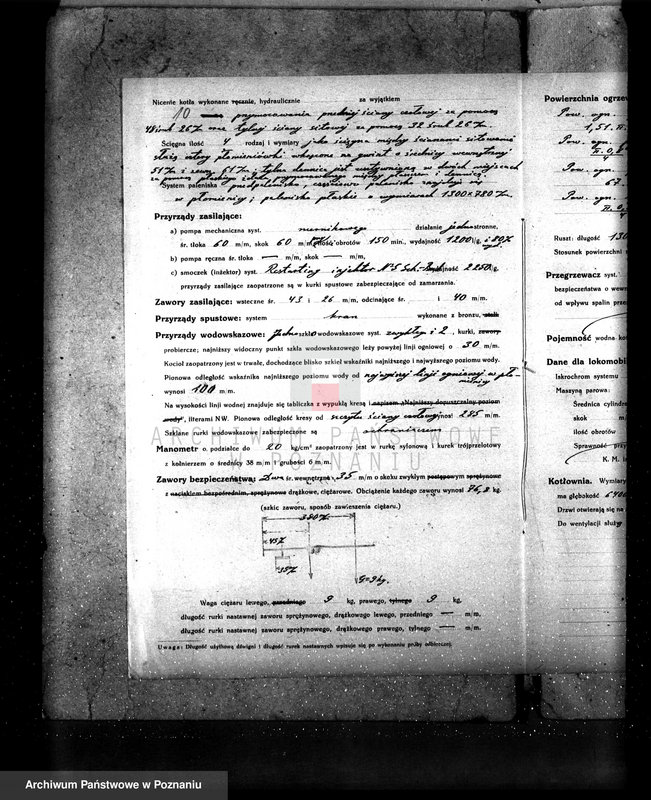 Nicenie kotła wykonane ręcznie, hydraulicznie za wyjątkiem
10 przymocowania przedniej ściany czołowej za pomocą
48 śrub 26 % oraz tylnej ściany sitowej za pomocą 32 śrub 26 %
Ścięgna ilość 4 rodzaj i wymiary jako ścięgna między ścianami sitowemi
służą cztery płomieniówki wkręcone na gwint o średnicy wewnętrznej
51 % i zewn. 61 %,
System paleniska
w płomienicy; palenisko płaskie o wymiarach 1300×780 %
Przyrządy zasilające:
a) pompa mechaniczna syst. nurnikowego działanie jednostronne,
śr. tłoka 60 m/m, skok 60 m/m, ilość obrotów 150 min., wydajność 1200 l/g.
b) pompa ręczna śr. tłoka — m/m, skok — m/m,
c) smoczek (inżektor) syst. Restarting injektor N°5 wydajność 2250 l/g.
przyrządy zasilające zaopatrzone są w kurki spustowe zabezpieczone od zamarzania.
Zawory zasilające: wsteczne śr. 43 i 26 m/m, odcinające śr. i 40 m/m.
Przyrządy spustowe: system kran wykonane z bronzu, stali
Przyrządy wodowskazowe: Jedno szkło wodowskazowe syst. zwykłego i 2, kurki, zawory
probiercze; najniższy widoczny punkt szkła wodowskazowego leży powyżej linji ogniowej o 30 m/m.
Kocioł zaopatrzony jest w trwałe, dochodzące blisko szkieł wskaźniki najniższego i najwyższego poziomu wody.
Pionowa odległość wskaźnika najniższego poziomu wody od najwyższej linji ogniowej w pło-
mienicy
wynosi 100 m/m.
Na wysokości linji wodnej znajduje się tabliczka z wypukłą kresą i napisem „Najniższy dopuszczalny poziom
wody", literami N.W. Pionowa odległość kresy od szczytu ściany czołowej wynosi 285 m/m.
Szklane rurki wodowskazowe zabezpieczone są ochraniaczem
Manometr o podziałce do 20 kg/cm² zaopatrzony jest w rurkę syfonową i kurek trójprzelotowy
z kołnierzem o średnicy 38 m/m i grubości 6 m/m.
Zawory bezpieczeństwa: Dwa śr. wewnętrzna 35 m/m o skoku zwykłym postępowym sprężynowe
z naciskiem bezpośrednim, sprężynowe drążkowe, ciężarowe. Obciążenie każdego zaworu wynosi 76,2 kg.
(szkic zaworu, sposób zawieszenia ciężaru.)
380 %
45 %
35 %
G=9 kg.
Waga ciężaru lewego, przedniego 9 kg, prawego, tylnego 9 kg,
długość rurki nastawnej zaworu sprężynowego, drążkowego lewego, przedniego — m/m.
długość rurki nastawnej zaworu sprężynowego, drążkowego prawego, tylnego — m/m.
Uwaga: Długość użytkową dźwigni i długość rurek nastawnych wpisuje się po wykonaniu próby odbiorczej.
Powierzchnia ogrzew
Pow. ogn.
1,51. π.
Pow. ogn.
Pow. ogn.
67.
Pow. ogn.
Ruszt: długość 130
Stosunek powierzchni
Przegrzewacz syst.
bezpieczeństwa o wew
od wpływu spalin prze
Pojemność wodna ko
Dane dla lokomobi
Iskrochron systemu
Maszyna parowa:
Średnica cylindre
skok m
ilość obrotów
Sprawność przy
K. M. i
Kotłownia. Wymiary
ma głębokość
Drzwi otwierają się na
Do wentylacji służy
ARCHIWUM PAŃSTWOWE
W POZNANIU
Archiwum Państwowe w Poznaniu